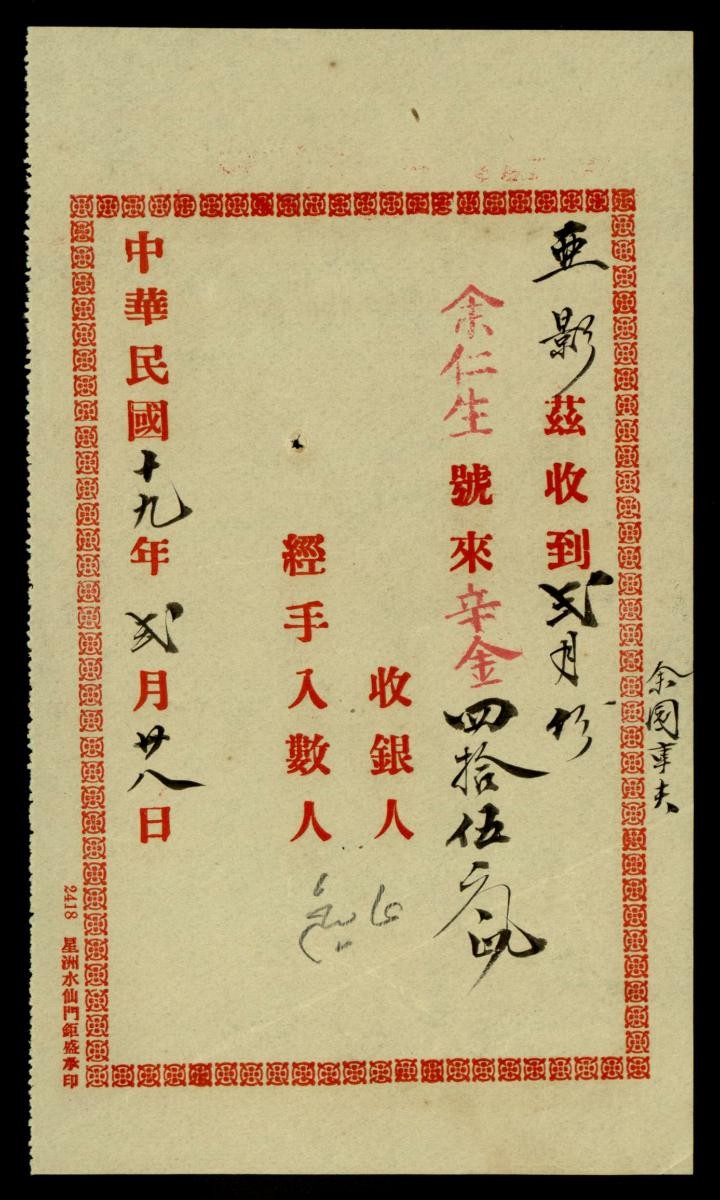 余園車夫
亜影茲收到弍月份
余仁生號來辛金四拾伍元正
收銀人
經手入數人
中華民國十九年弍月廿八日
2418 星洲水仙門鉅盛承印